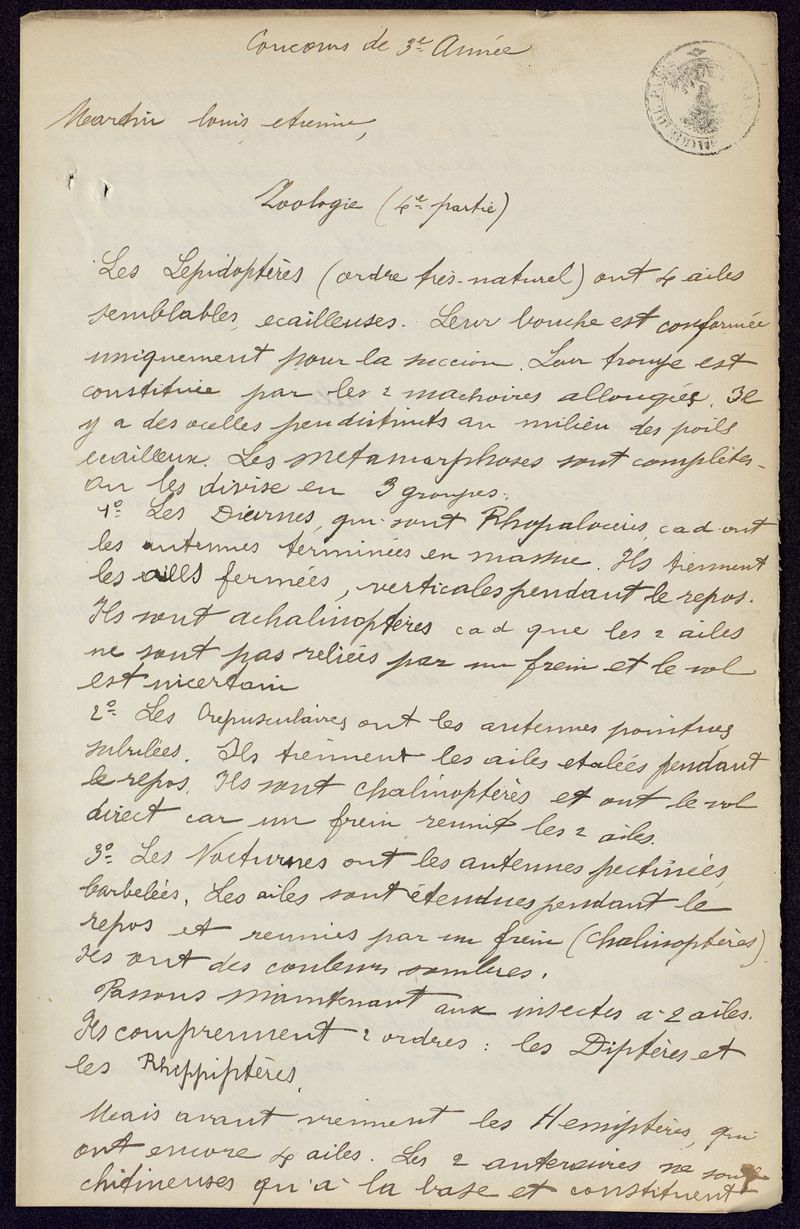 Concours de 3e Année
Martin Louis, etienne,
Zoologie (4e partie)
Les Lepidoptères (ordre très-naturel) ont 4 ailes
semblables, ecailleuses. Leur bouche est conformée
uniquement pour la succion. Leur trompe est
constituée par les 2 machoires allongées. Il
y a des ocelles peu distincts au milieu des poils
ecailleux. Les métamorphoses sont complètes.
On les divise en 3 groupes:
1o Les Diurnes, qui sont Rhopalocères, cad ont
les antennes terminées en massue. Ils tiennent
les ailes fermées, verticales pendant le repos.
Ils sont achalinoptères cad que les 2 ailes
ne sont pas reliées par un frein et le vol
est incertain
2o Les Crepusculaires ont les antennes pointues,
subulées. Ils tiennent les ailes etalées pendant
le repos. Ils sont chalinoptères et ont le vol
direct car un frein reunit les 2 ailes.
3o Les Nocturnes ont les antennes pectinées,
barbelées. Les ailes sont étendues pendant le
repos et reunies par un frein (chalinoptères).
Ils ont des couleurs sombres.
Passons maintenant aux insectes à 2 ailes.
Ils comprennent 2 ordres : les Diptères et
les Rhippiptères.
Mais avant viennent les Hemiptères, qui
ont encore 4 ailes. Les 2 anterieures ne sont
chitineuses qu'à la base et constituent